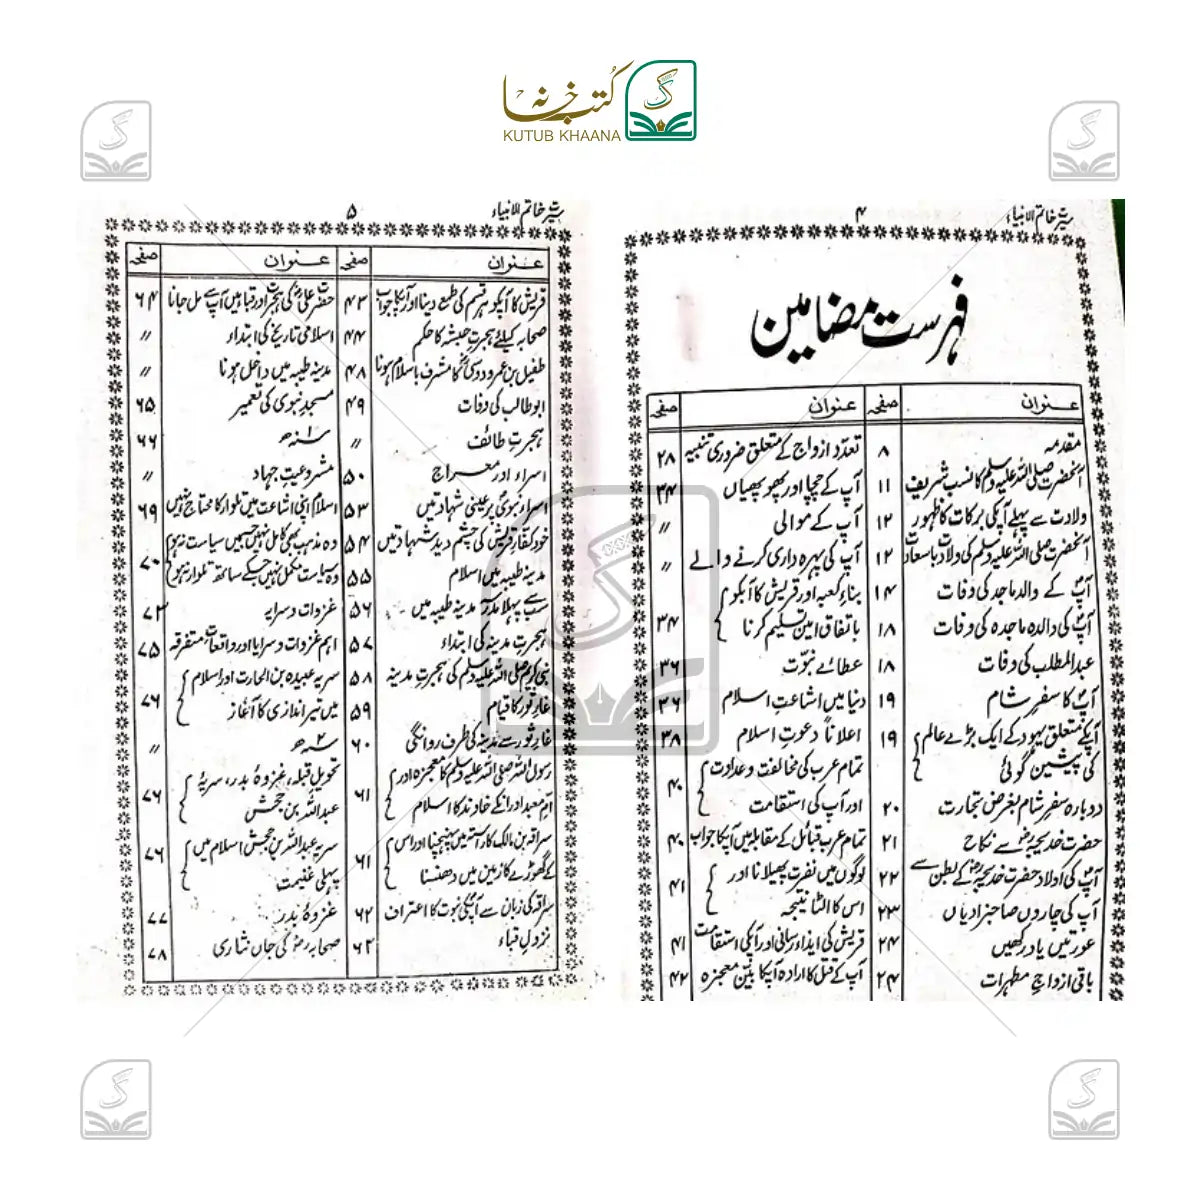 کتب خانہ
KUTUB KHAANA
۴
سیرت خاتم الانبیاء
فہرست مضامین
عنوان صفحہ
مقدمہ ۸
آنحضرت صلی اللہ علیہ وسلم کا نسب شریف ۱۱
ولادت سے پہلے آپکی برکات کا ظہور ۱۲
آنحضرت صلی اللہ علیہ وسلم کی ولادت باسعادت ۱۲
آپ کے والد ماجد کی وفات ۱۴
آپ کی والدہ ماجدہ کی وفات ۱۸
عبدالمطلب کی وفات ۱۸
آپ کا سفر شام ۱۹
آپکے متعلق یہود کے ایک بڑے عالم ۱۹
کی پیشین گوئی
دوبارہ سفر شام بغرض تجارت ۲۰
حضرت خدیجہؓ سے نکاح ۲۱
آپ کی اولاد حضرت خدیجہؓ کے بطن سے ۲۲
آپ کی چاروں صاحبزادیاں ۲۳
عورتیں یاد رکھیں ۲۴
باقی ازواج مطہرات ۲۴
عنوان صفحہ
تعدد ازواج کے متعلق ضروری تنبیہ ۲۸
آپ کے چچا اور پھوپھیاں ۳۴
آپ کے موالی 〃
آپ کی پہرہ داری کرنے والے 〃
بناء کعبہ اور قریش کا آپکو
باتفاق امین تسلیم کرنا ۳۴
عطائے نبوّت ۳۶
دنیا میں اشاعت اسلام ۳۶
اعلاناً دعوت اسلام ۳۸
تمام عرب کی مخالفت و عداوت
اور آپ کی استقامت ۴۰
تمام عرب قبائل کے مقابلہ میں آپکا جواب ۴۰
لوگوں میں نفرت پھیلانا اور
اس کا الٹا نتیجہ ۴۱
قریش کی ایذا رسانی اور آپکی استقامت ۴۱
آپ کے قتل کا ارادہ آپکا بیّن معجزہ ۴۲
۵
سیرت خاتم الانبیاء
عنوان صفحہ
قریش کا آپکو ہر قسم کی طمع دینا اور آپکا جواب ۴۳
صحابہ کیلئے ہجرت حبشہ کا حکم ۴۴
طفیل بن عمرو دوسی کا مشرف باسلام ہونا ۴۸
ابو طالب کی وفات ۴۹
ہجرت طائف 〃
اسراء اور معراج ۵۰
اسراء نبوی پر عینی شہادتیں ۵۳
خود کفار قریش کی چشم دید شہادتیں ۵۴
مدینہ طیبہ میں اسلام ۵۵
سب سے پہلا مدرسہ مدینہ طیبہ میں ۵۶
ہجرت مدینہ کی ابتداء ۵۷
نبی کریم صلی اللہ علیہ وسلم کی ہجرت مدینہ ۵۸
غار ثور کا قیام ۵۹
غار ثور سے مدینہ کی طرف روانگی ۶۰
رسول اللہ صلی اللہ علیہ وسلم کا معجزہ اور
ام معبد اور انکے خاوند کا اسلام ۶۱
سراقہ بن مالک کا راستہ میں پہنچنا اور اس
کے گھوڑے کا زمین میں دھنسنا ۶۱
سراقہ کی زبان سے آپکی نبوت کا اعتراف ۶۲
نزول قباء ۶۲
عنوان صفحہ
حضرت علیؓ کی ہجرت اور قبا میں آپ سے مل جانا ۶۴
اسلامی تاریخ کی ابتداء 〃
مدینہ طیبہ میں داخل ہونا 〃
مسجد نبوی کی تعمیر ۶۵
۱ سنہ ھ ۶۶
مشروعیت جہاد 〃
اسلام اپنی اشاعت میں تلوار کا محتاج نہیں ۶۹
وہ مذہب بھی کامل نہیں جسمیں سیاست نہ ہو
وہ سیاست مکمل نہیں جسکے ساتھ تلوار نہ ہو ۷۰
غزوات و سرایہ ۷۲
اہم غزوات و سرایا اور واقعات متفرقہ ۷۵
سریہ عبیدہ بن الحارث اور اسلام
میں تیر اندازی کا آغاز ۷۶
۲ سنہ ھ 〃
تحویل قبلہ، غزوۂ بدر، سریۂ
عبداللہ بن جحش ۷۶
سریہ عبداللہ بن جحش اسلام میں
پہلی غنیمت ۷۶
غزوۂ بدر ۷۷
صحابہؓ کی جاں نثاری ۷۸